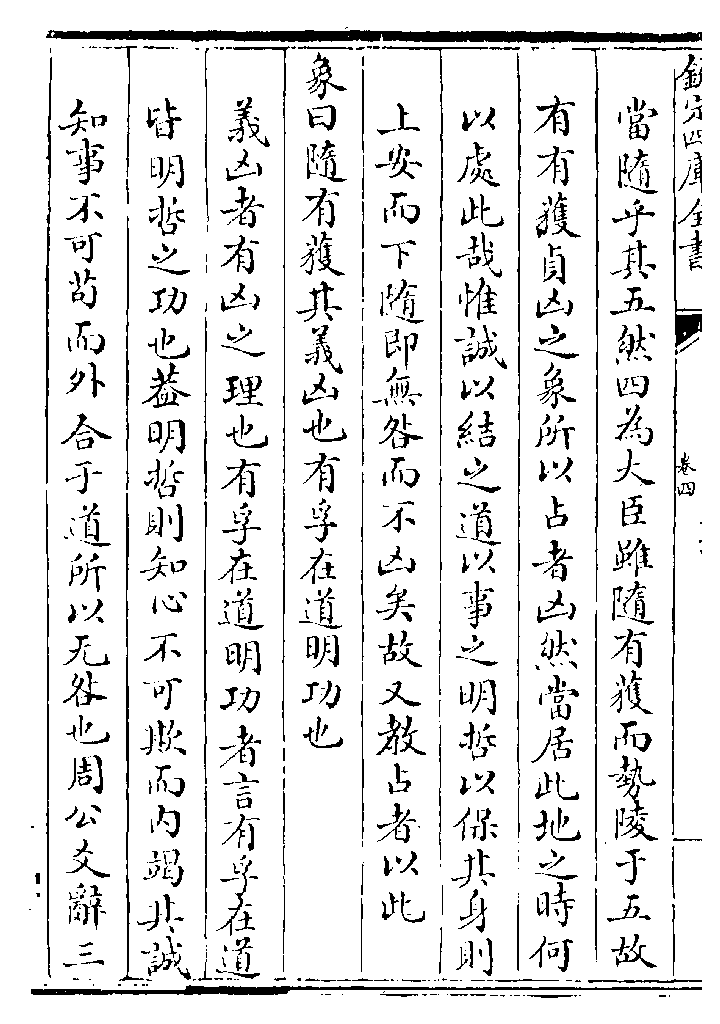 欽定四庫全書
卷四
當隨乎其五然四為大臣雖隨有獲而勢陵于五故
有有獲貞凶之象所以占者凶然當居此地之時何
以處此哉惟誠以結之道以事之明哲以保其身則
上安而下隨即無咎而不凶矣故又教占者以此
象曰隨有獲其義凶也有孚在道明功也
義凶者有凶之理也有孚在道明功者言有孚在道
皆明哲之功也葢明哲則知心不可欺而内竭其誠
知事不可苟而外合于道所以无咎也周公爻辭三